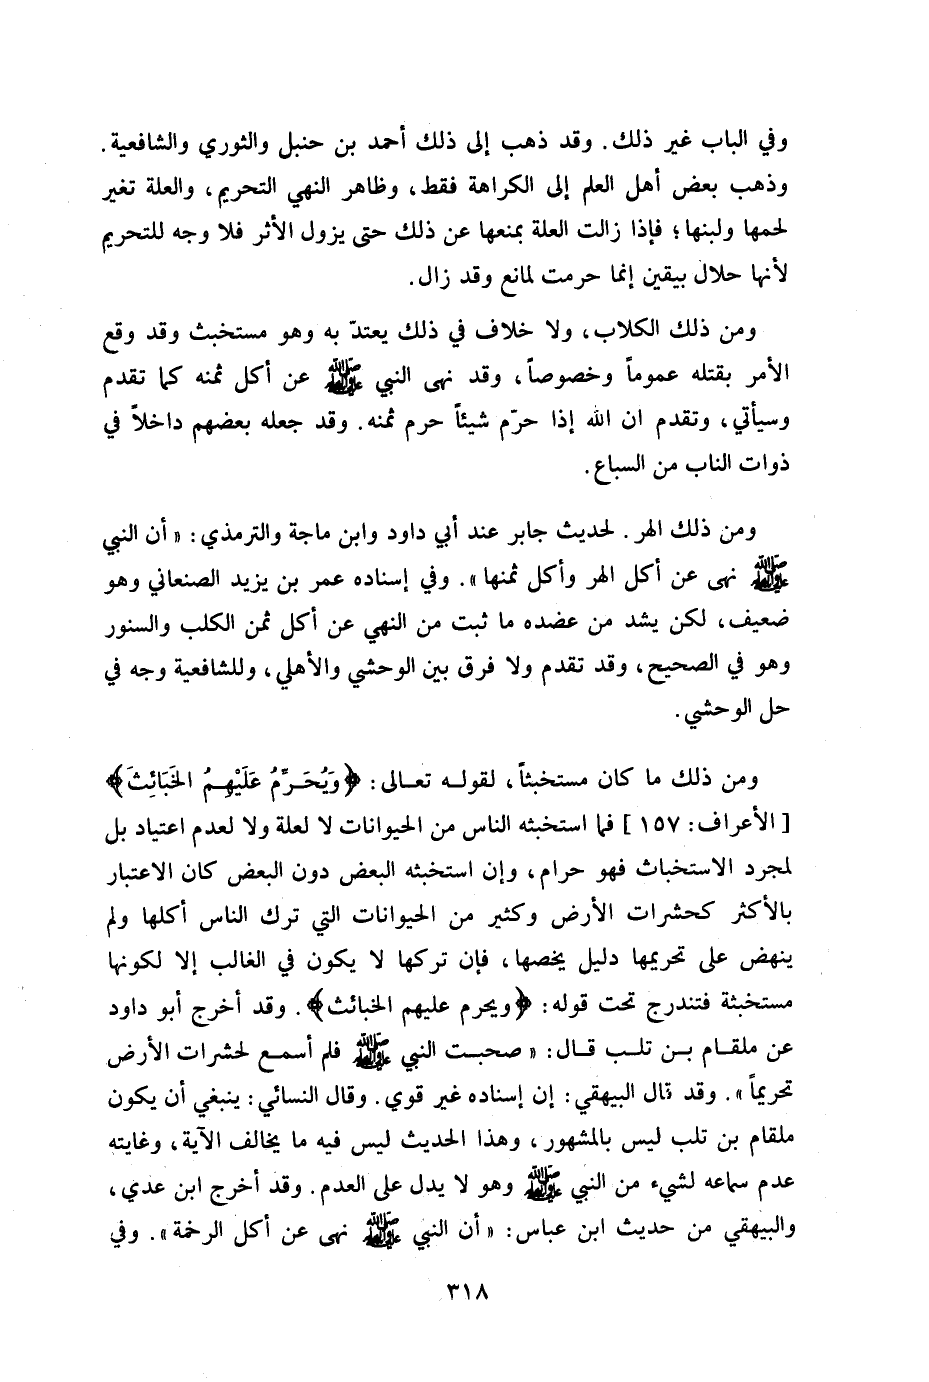 وفي الباب غير ذلك. وقد ذهب إلى ذلك أحمد بن حنبل والثوري والشافعية.
وذهب بعض أهل العلم إلى الكراهة فقط، وظاهر النهي التحريم، والعلة تغير
لحمها ولبنها؛ فإذا زالت العلة بمنعها عن ذلك حتى يزول الأثر فلا وجه للتحريم
لأنها حلال بيقين إنما حرمت لمانع وقد زال.
ومن ذلك الكلاب، ولا خلاف في ذلك يعتدّ به وهو مستخبث وقد وقع
الأمر بقتله عموماً وخصوصاً، وقد نهى النبي ﷺ عن أكل ثمنه كما تقدم
وسيأتي، وتقدم ان الله إذا حرّم شيئاً حرم ثمنه. وقد جعله بعضهم داخلاً في
ذوات الناب من السباع.
ومن ذلك الهر. لحديث جابر عند أبي داود وابن ماجة والترمذي: «أن النبي
ﷺ نهى عن أكل الهر وأكل ثمنها». وفي إسناده عمر بن يزيد الصنعاني وهو
ضعيف، لكن يشد من عضده ما ثبت من النهي عن أكل ثمن الكلب والسنور
وهو في الصحيح، وقد تقدم ولا فرق بين الوحشي والأهلي، وللشافعية وجه في
حل الوحشي.
ومن ذلك ما كان مستخبثاً، لقوله تعالى: ﴿وَيُحَرِّمُ عَلَيْهِمُ الخَبَائِثَ﴾
[الأعراف: ١٥٧] فما استخبثه الناس من الحيوانات لا لعلة ولا لعدم اعتياد بل
لمجرد الاستخباث فهو حرام، وإن استخبثه البعض دون البعض كان الاعتبار
بالأكثر كحشرات الأرض وكثير من الحيوانات التي ترك الناس أكلها ولم
ينهض على تحريمها دليل يخصها، فإن تركها لا يكون في الغالب إلا لكونها
مستخبثة فتندرج تحت قوله: ﴿ويحرم عليهم الخبائث﴾. وقد أخرج أبو داود
عن ملقام بن تلب قال: «صحبت النبي ﷺ فلم أسمع لحشرات الأرض
تحريماً». وقد قال البيهقي: إن إسناده غير قوي. وقال النسائي: ينبغي أن يكون
ملقام بن تلب ليس بالمشهور، وهذا الحديث ليس فيه ما يخالف الآية، وغايته
عدم سماعه لشيء من النبي ﷺ وهو لا يدل على العدم. وقد أخرج ابن عدي،
والبيهقي من حديث ابن عباس: «أن النبي ﷺ نهى عن أكل الرخمة». وفي
٣١٨